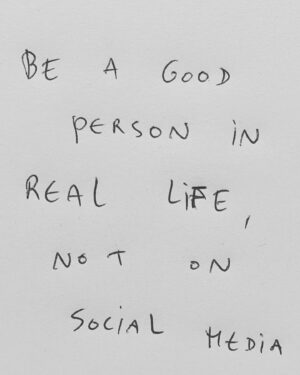 BE A GOOD
PERSON iN
REAL LiFE,
NOT ON
SOCiAL MEDiA